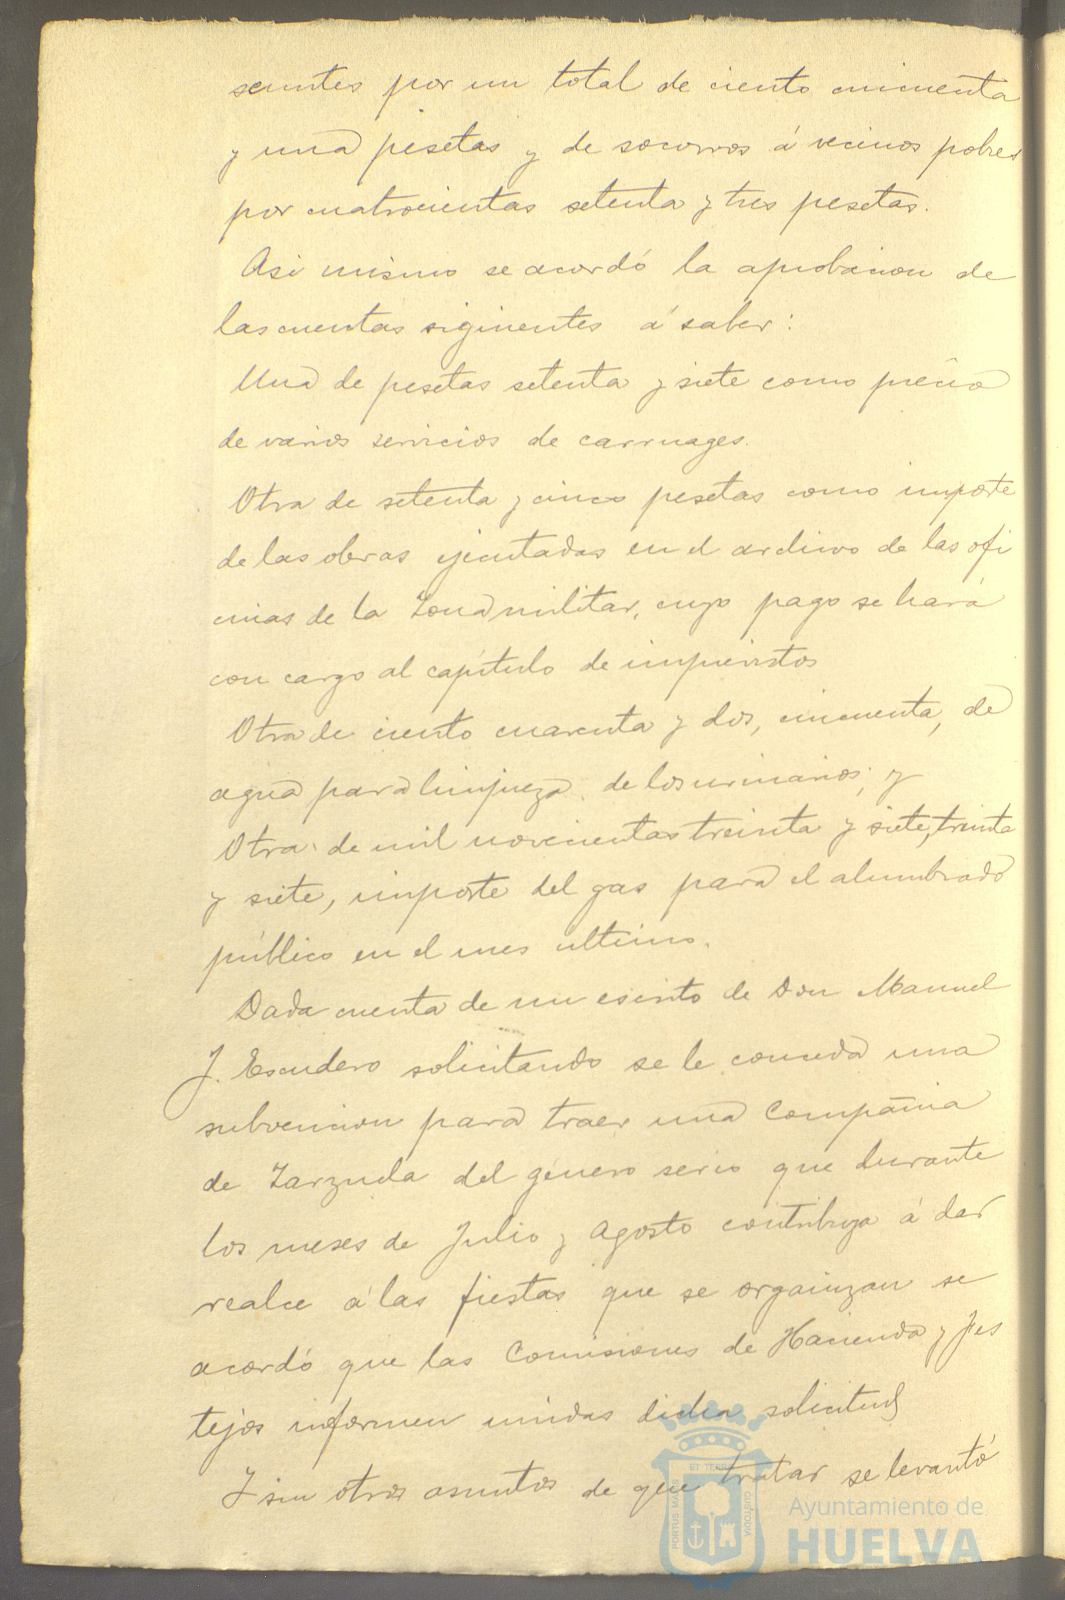 seuntes por un total de ciento cincuenta
y una pesetas y de socorros á vecinos pobres
por cuatrocientas setenta y tres pesetas.
Asi mismo se acordó la aprobacion de
las cuentas siguientes á saber:
Una de pesetas setenta y siete como precio
de varios servicios de carruages.
Otra de setenta y cinco pesetas como importe
de las obras ejecutadas en el archivo de las ofi
cinas de la Zona militar, cuyo pago se hará
con cargo al capítulo de imprevistos
Otra de ciento cuarenta y dos, cincuenta, de
agua para limpieza de los urinarios; y
Otra de mil novecientas treinta y siete, treinta
y siete, importe del gas para el alumbrado
público en el mes ultimo.
Dada cuenta de un escrito de Don Manuel
J. Escudero solicitando se le conceda una
subvencion para traer una Compañia
de Zarzuela del género serio que durante
los meses de Julio y Agosto contribuya á dar
realce á las fiestas que se organizan se
acordó que las Comisiones de Hacienda y Fes
tejos informen unidas dicha solicitud
Y sin otros asuntos de que tratar se levantó
PORTUS MARIS ET TERRÆ CUSTODIA
Ayuntamiento de
HUELVA